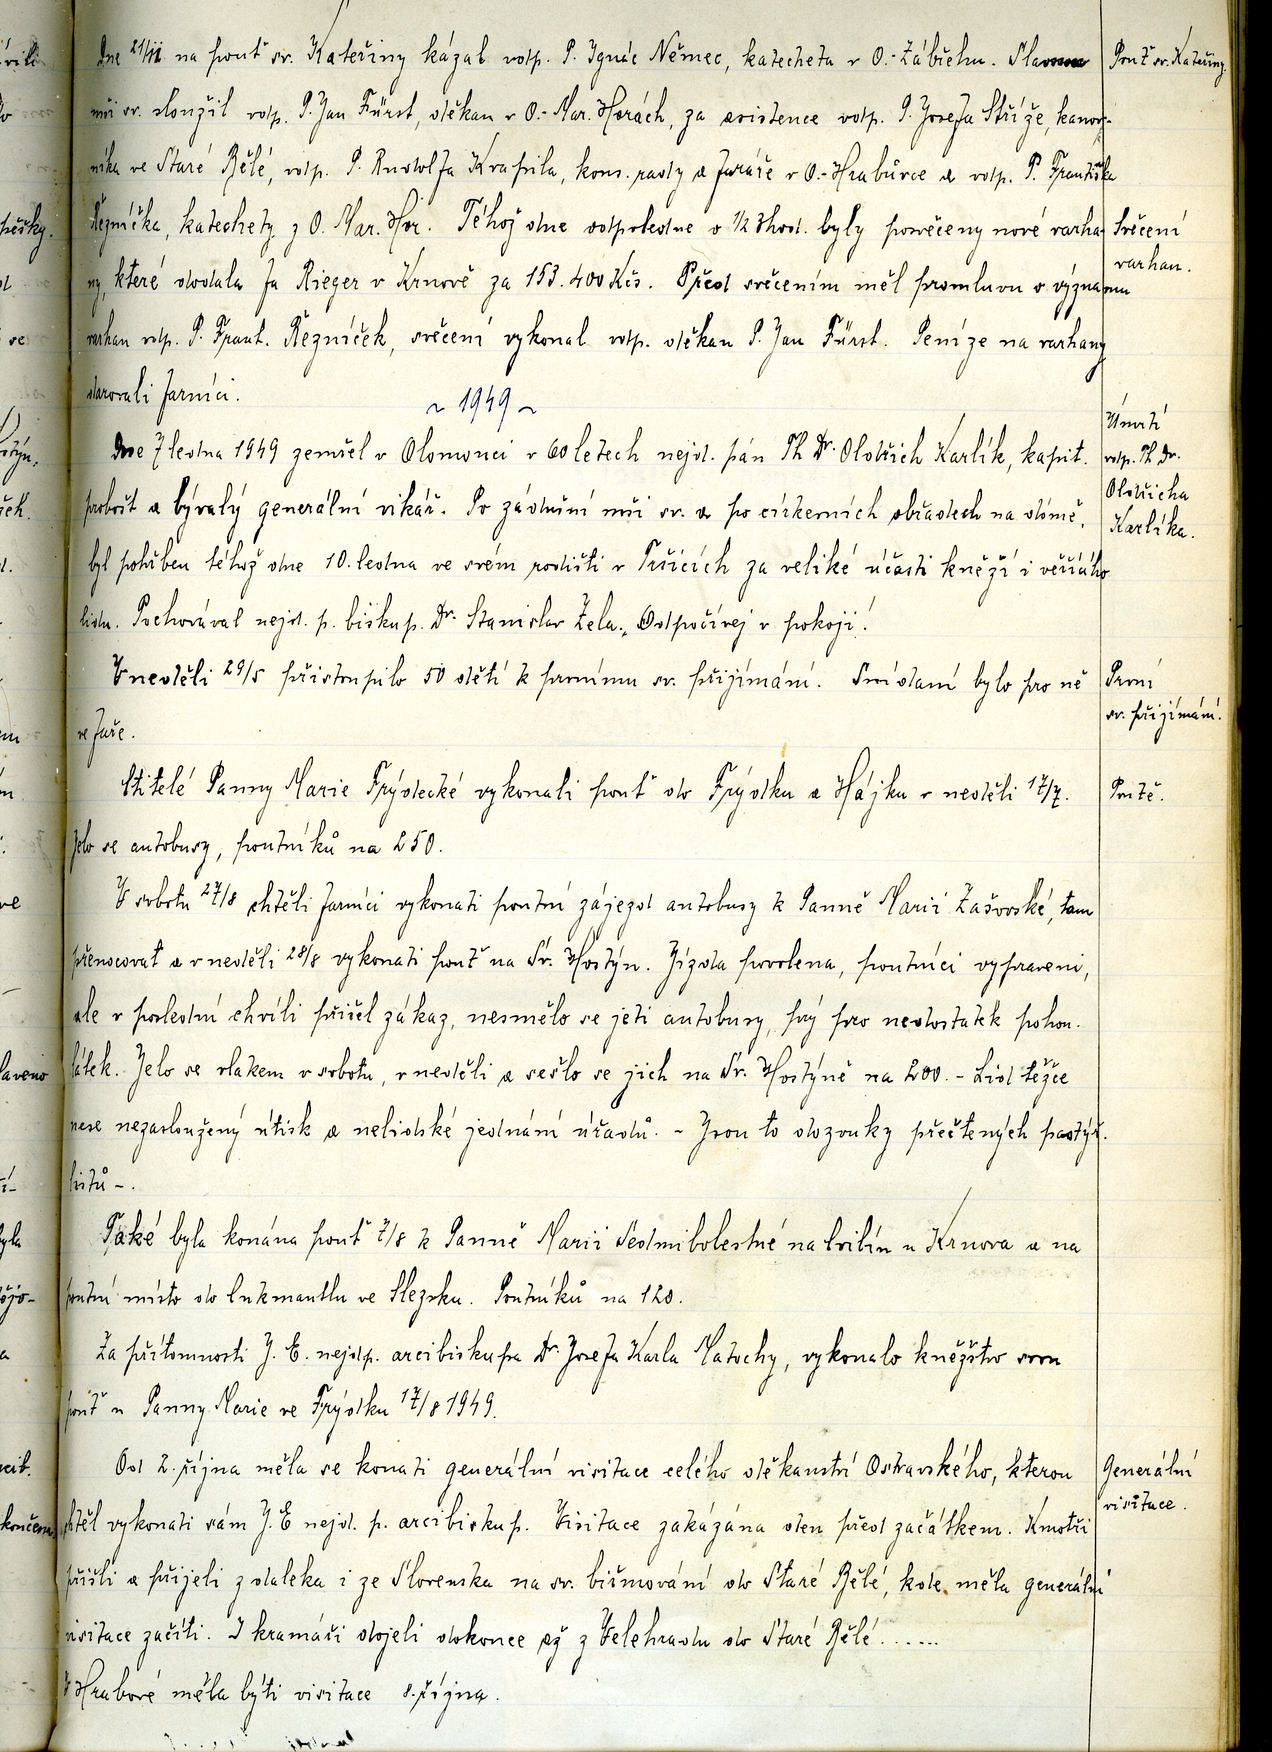 Dne 21/11 na pouť sv. Kateřiny kázal vdp. P. Ignác Němec, katecheta v O.-Zábřehu. Slavnou
Pouť sv. Kateřiny.
mši sv. sloužil vdp. P. Jan Fürst, děkan v O.-Mar. Horách, za asistence vdp. P. Josefa Stříže, kanov-
níka ve Staré Bělé, vdp. P. Rudolfa Kvapila, kons. rady a faráře v O.-Hrabůvce a vdp. P. Františka
Řezníčka, katechety z O. Mar. Hor. Téhož dne odpoledne o 1/2 3 hod. byly posvěceny nové varha-
Svěcení
varhan.
ny, které dodala fa Rieger v Krnově za 153.400 Kčs. Před svěcením měl promluvu o významu
varhan vdp. P. Frant. Řezníček, svěcení vykonal vdp. děkan P. Jan Fürst. Peníze na varhany
darovali farníci.
~ 1949 ~
Dne 7 ledna 1949 zemřel v Olomouci v 60 letech nejd. pán Th Dr. Oldřich Karlík, kapit.
Úmrtí
vdp. Th Dr.
Oldřicha
Karlíka.
probošt a bývalý generální vikář. Po zádušní mši sv. a po církevních obřadech na dómě,
byl pohřben téhož dne 10. ledna ve svém rodišti v Tršicích za veliké účasti kněží i věřícího
lidu. Pochovával nejd. p. biskup. Dr. Stanislav Zela. Odpočívej v pokoji!
V neděli 29/5 přistoupilo 50 dětí k prvnímu sv. přijímání. Snídaní bylo pro ně
První
sv. přijímání.
ve faře.
Ctitelé Panny Marie Frýdecké vykonali pouť do Frýdku a Hájku v neděli 17/7.
Poutě.
Jelo se autobusy, poutníků na 250.
V sobotu 27/8 chtěli farníci vykonati poutní zájezd autobusy k Panně Marii Zašovské, tam
přenocovat a v neděli 28/8 vykonati pouť na Sv. Hostýn. Jízda povolena, poutníci vypraveni,
ale v poslední chvíli přišel zákaz, nesmělo se jeti autobusy, prý pro nedostatek pohon.
látek. Jelo se vlakem v sobotu, v neděli a sešlo se jich na Sv. Hostýně na 200. - Lid těžce
nese nezasloužený útisk a nelidské jednání úřadů. - Jsou to dozvuky přečtených pastýř.
listů -.
Také byla konána pouť 7/8 k Panně Marii Sedmibolestné na Cvilín u Krnova a na
poutní místo do Cukmantlu ve Slezsku. Poutníků na 120.
Za přítomnosti J. E. nejdp. arcibiskupa Dr. Josefa Karla Matochy, vykonalo kněžstvo svou
pouť u Panny Marie ve Frýdku 17/8 1949.
Od 2. října měla se konati generální visitace celého děkanství Ostravského, kterou
Generální
visitace.
chtěl vykonati sám J. E nejd. p. arcibiskup. Visitace zakázána den před začátkem. Kmotři
přišli a přijeli z daleka i ze Slovenska na sv. biřmování do Staré Bělé, kde měla generální
visitace začíti. I kramáři dojeli dokonce až z Velehradu do Staré Bělé......
V Hrabové měla býti visitace 8. října.